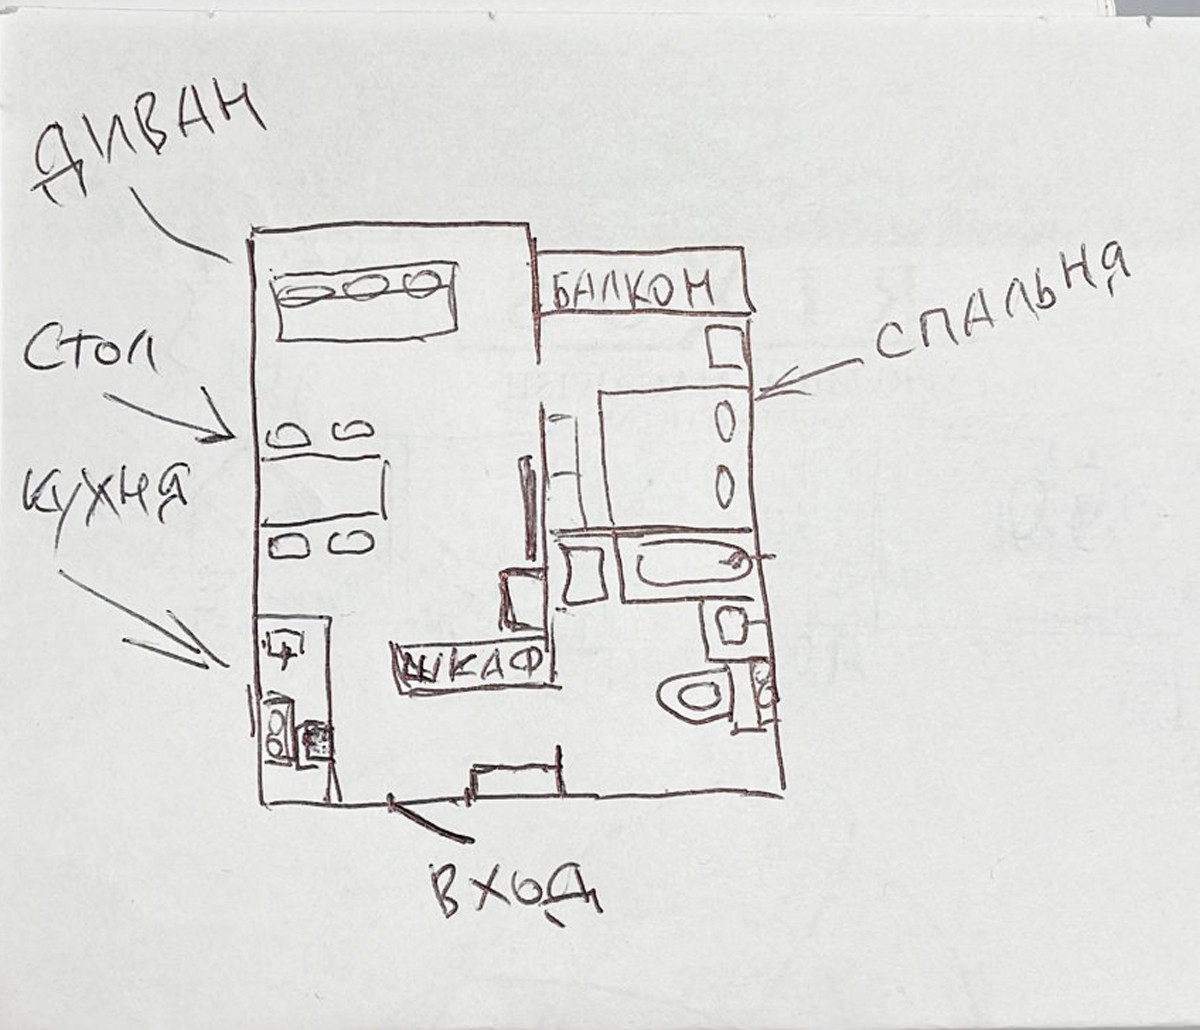 ДИВАН
БАЛКОН
СПАЛЬНЯ
СТОЛ
КУХНЯ
ШКАФ
ВХОД